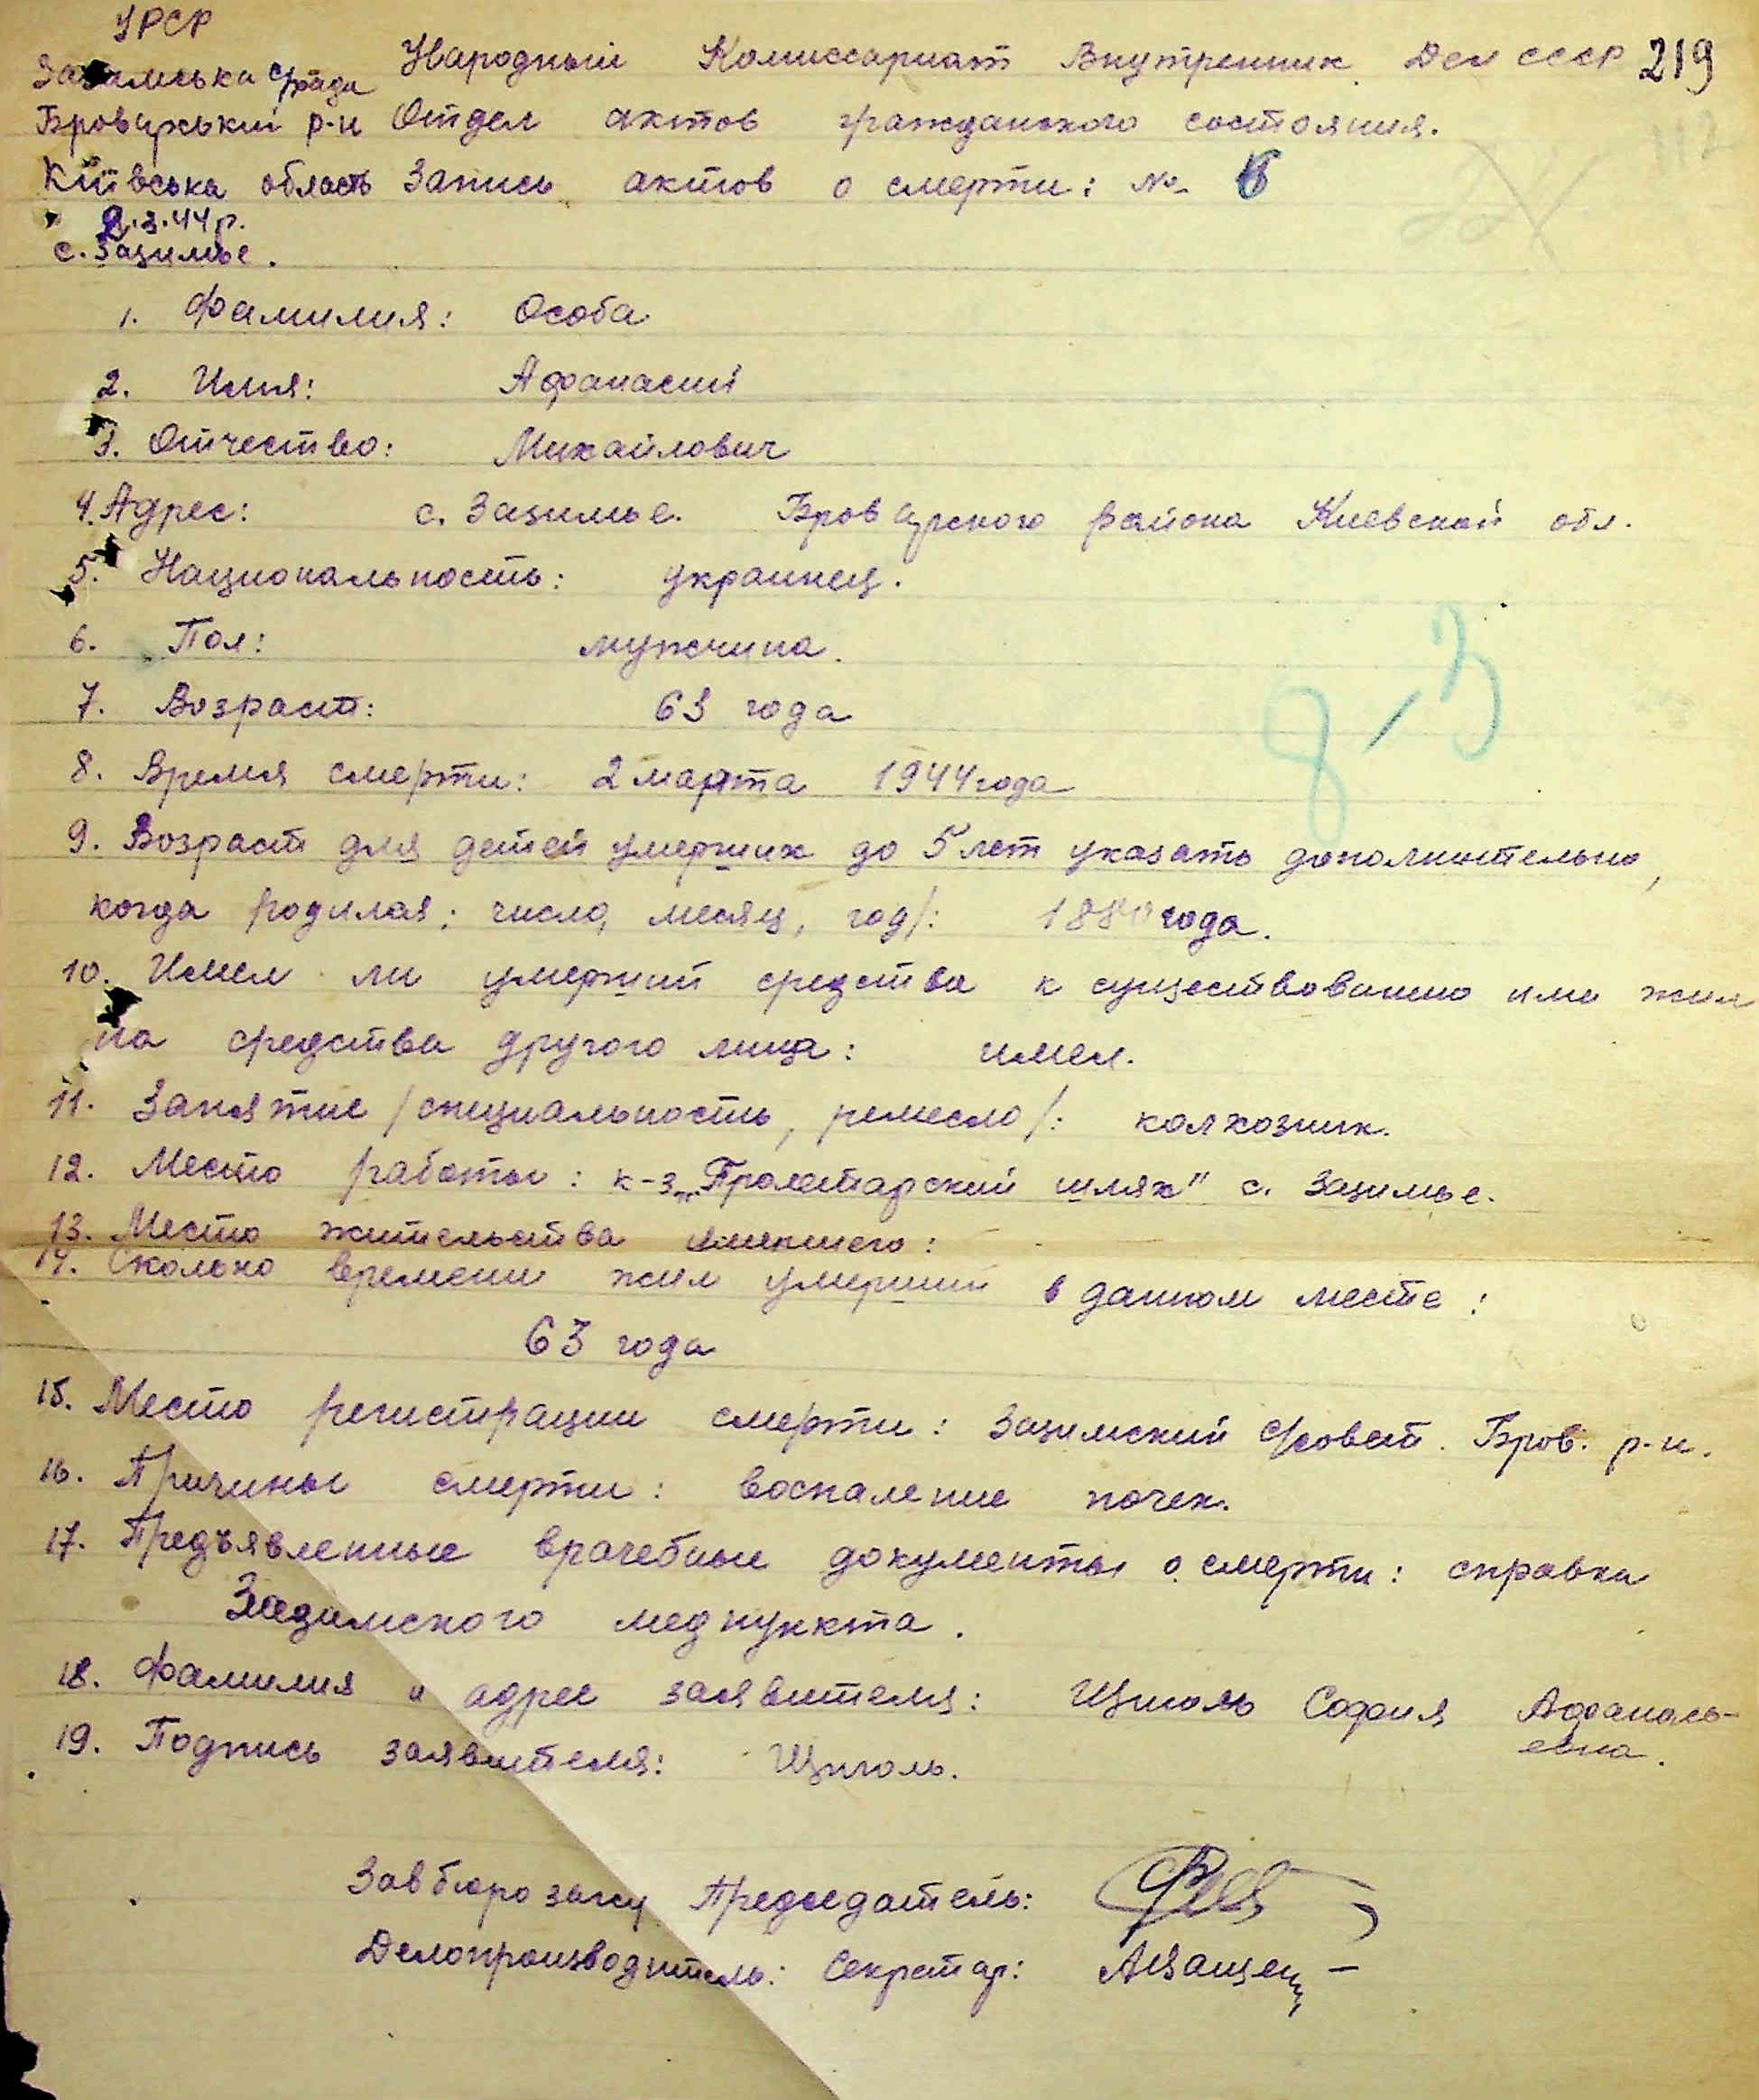 УРСР
Народный Комиссариат Внутренних Дел СССР 219
Зазимська с/рада
Броварський р-н Отдел актов гражданского состояния.
Київська область Запись актов о смерти: № 6
2.3.44 р.
с. Зазимье.
1. Фамилия: Особа
2. Имя: Афанасий
3. Отчество: Михайлович
4. Адрес: с. Зазимье. Броварского района Киевской обл.
5. Национальность: украинец.
6. Пол: мужчина.
7. Возраст: 63 года
8. Время смерти: 2 марта 1944 года
9. Возраст для детей умерших до 5 лет указать дополнительно,
когда родилая: число, месяц, год/: 1880 года.
10. Имел ли умерший средства к существованию или жил
на средства другого лица: имел.
11. Занятие /специальность, ремесло/: колхозник.
12. Место работы: к-з „Пролетарский шлях" с. Зазимье.
13. Место жительства умершего:
14. Сколько времени жил умерший в данном месте:
63 года
15. Место регистрации смерти: Зазимский с/совет. Бров. р-н.
16. Причины смерти: воспаление почек.
17. Предъявленные врачебные документы о смерти: справка
Зазимского медпункта.
18. Фамилия и адрес заявителя: София Афанась-
евна.
19. Подпись заявителя:
Зав бюро загс Председатель:
Делопроизводитель: Секретар:
8-3